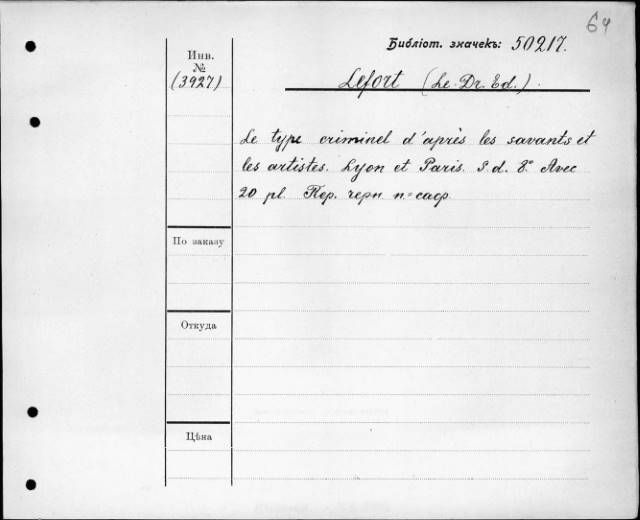 64
Библіот. значекъ: 50217.
Инв.
№
(3927)
Lefort (Le Dr. Ed.).
Le type criminel d'après les savants et
les artistes. Lyon et Paris. S. d. 8° Avec
20 pl. Пер. черн. п=саф.
По заказу
Откуда
Цѣна